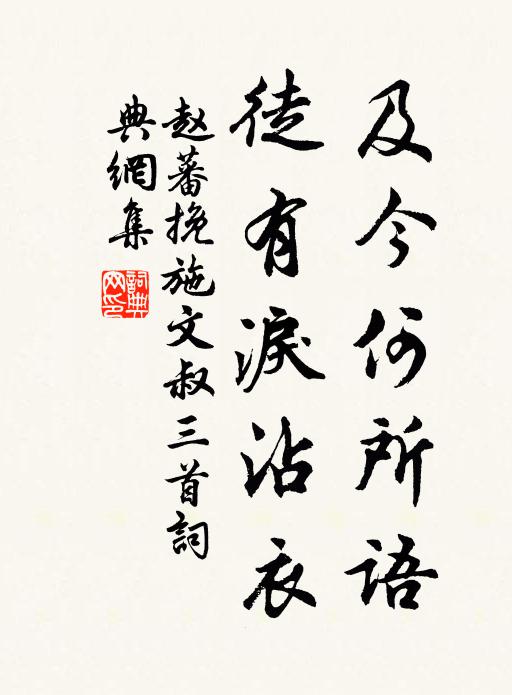 及今何所語
徒有淚沾衣
赵蕃挽施文叔三首詞
典網集
詞典网印